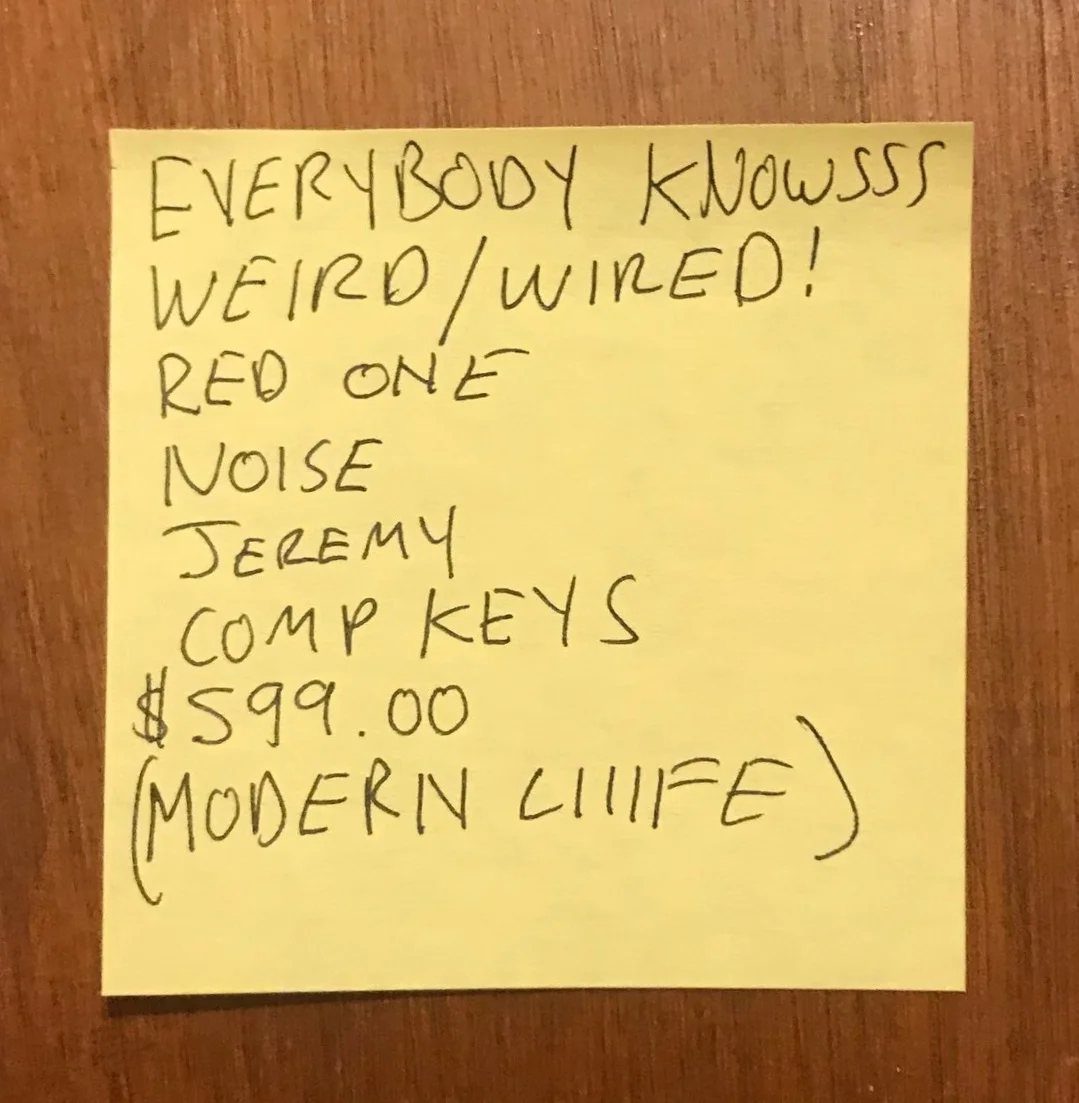 EVERYBODY KNOWSSS
WEIRD/WIRED!
RED ONE
NOISE
JEREMY
COMP KEYS
$599.00
(MODERN LIIIIFE)